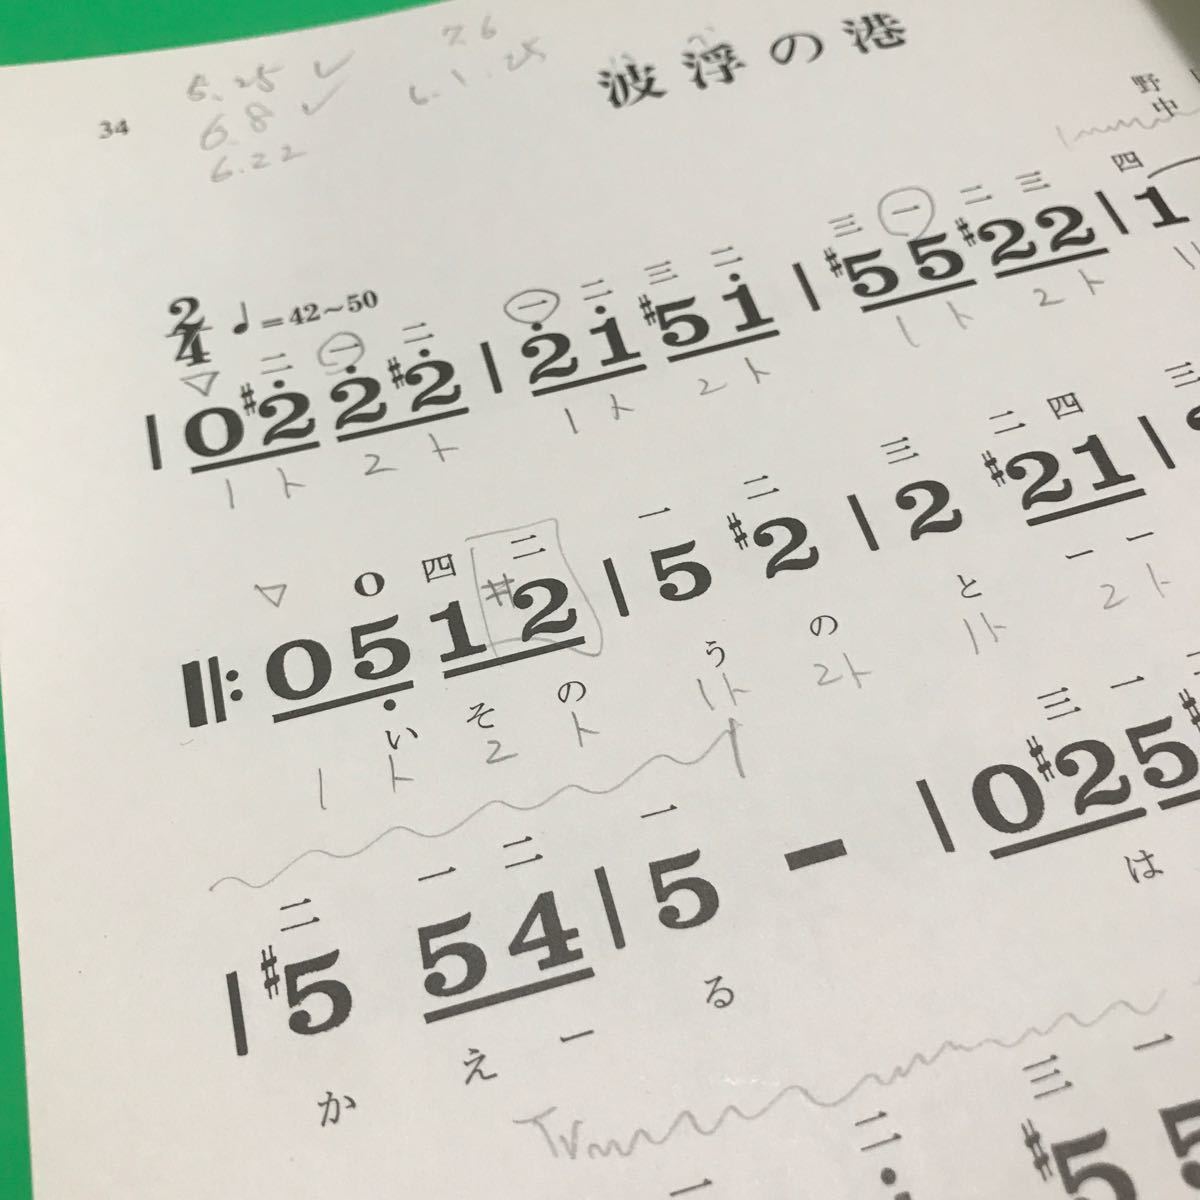 7.6
5.25 ✓
6.8 ✓
6.22
34
波浮の港
野
中
2/4 ♩=42~50
二 一 二 一 二 三 二 三 一 二 三 四
| 0 #2̇ 2̇ #2̇ | 2̇ 1̇ #5 1̇ | #5 5 #2 2 | 1
1 ト 2 ト 1 ト 2 ト 1 ト 2 ト 1
0 四 二 一 二 三 二 四 三
‖: 0 5̣ 1 #2 | 5 #2 | 2 #2 1 |
い そ の う の と ー ー
1 ト 2 ト 1ト 2ト 1ト 2ト
二 一 二 一 三 一
| #5 5 4 | 5 - | 0 #2 5
か え ー る は
Tr
三 一
二
一
#5 5